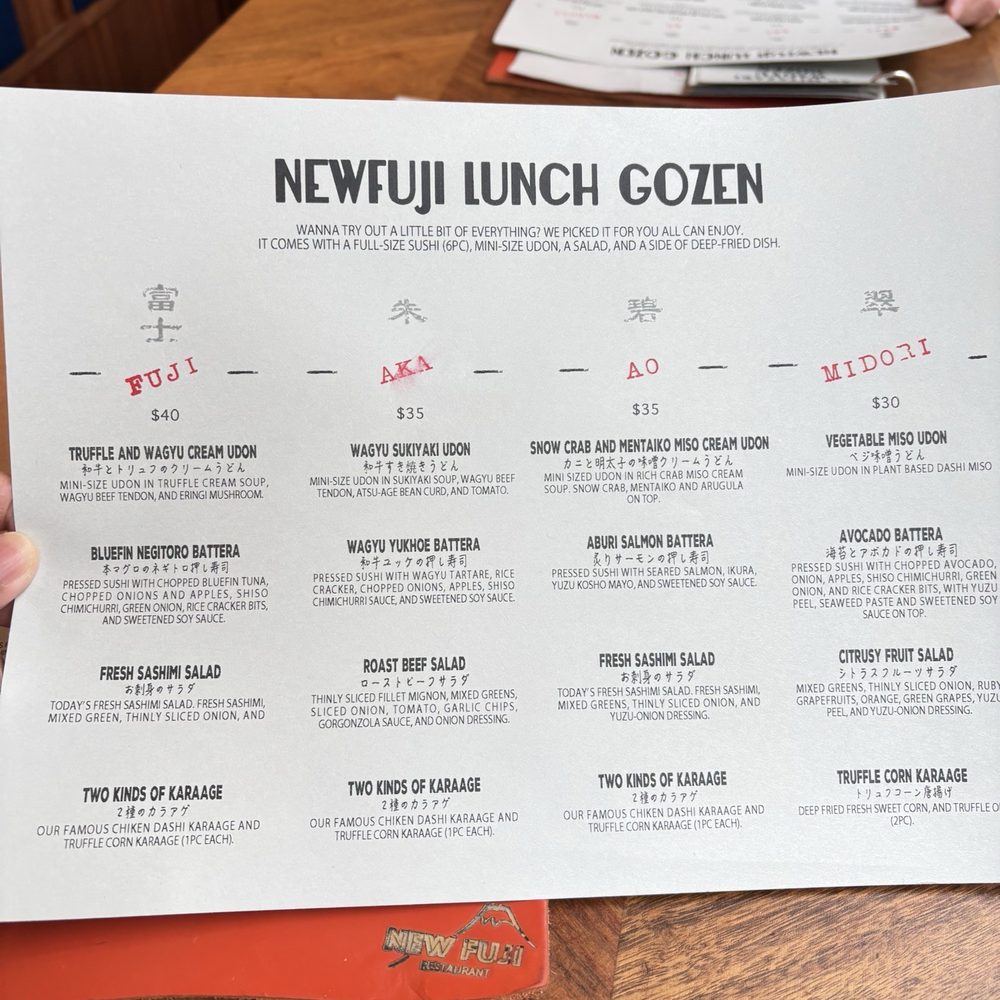 NEWFUJI LUNCH GOZEN
NEWFUJI LUNCH GOZEN
WANNA TRY OUT A LITTLE BIT OF EVERYTHING? WE PICKED IT FOR YOU ALL CAN ENJOY.
IT COMES WITH A FULL-SIZE SUSHI (6PC), MINI-SIZE UDON, A SALAD, AND A SIDE OF DEEP-FRIED DISH.
富士
FUJI
$40
TRUFFLE AND WAGYU CREAM UDON
和牛とトリュフのクリームうどん
MINI-SIZE UDON IN TRUFFLE CREAM SOUP,
WAGYU BEEF TENDON, AND ERINGI MUSHROOM.
BLUEFIN NEGITORO BATTERA
本マグロのネギトロ押し寿司
PRESSED SUSHI WITH CHOPPED BLUEFIN TUNA,
CHOPPED ONIONS AND APPLES, SHISO
CHIMICHURRI, GREEN ONION, RICE CRACKER BITS,
AND SWEETENED SOY SAUCE.
FRESH SASHIMI SALAD
お刺身のサラダ
TODAY'S FRESH SASHIMI SALAD. FRESH SASHIMI,
MIXED GREEN, THINLY SLICED ONION, AND
TWO KINDS OF KARAAGE
2種のカラアゲ
OUR FAMOUS CHIKEN DASHI KARAAGE AND
TRUFFLE CORN KARAAGE (1PC EACH).
朱
AKA
$35
WAGYU SUKIYAKI UDON
和牛すき焼きうどん
MINI-SIZE UDON IN SUKIYAKI SOUP, WAGYU BEEF
TENDON, ATSU-AGE BEAN CURD, AND TOMATO.
WAGYU YUKHOE BATTERA
和牛ユッケの押し寿司
PRESSED SUSHI WITH WAGYU TARTARE, RICE
CRACKER, CHOPPED ONIONS, APPLES, SHISO
CHIMICHURRI SAUCE, AND SWEETENED SOY SAUCE.
ROAST BEEF SALAD
ローストビーフサラダ
THINLY SLICED FILLET MIGNON, MIXED GREENS,
SLICED ONION, TOMATO, GARLIC CHIPS,
GORGONZOLA SAUCE, AND ONION DRESSING.
TWO KINDS OF KARAAGE
2種のカラアゲ
OUR FAMOUS CHIKEN DASHI KARAAGE AND
TRUFFLE CORN KARAAGE (1PC EACH).
碧
AO
$35
SNOW CRAB AND MENTAIKO MISO CREAM UDON
カニと明太子の味噌クリームうどん
MINI SIZED UDON IN RICH CRAB MISO CREAM
SOUP. SNOW CRAB, MENTAIKO AND ARUGULA
ON TOP.
ABURI SALMON BATTERA
炙りサーモンの押し寿司
PRESSED SUSHI WITH SEARED SALMON, IKURA,
YUZU KOSHO MAYO, AND SWEETENED SOY SAUCE.
FRESH SASHIMI SALAD
お刺身のサラダ
TODAY'S FRESH SASHIMI SALAD. FRESH SASHIMI,
MIXED GREENS, THINLY SLICED ONION, AND
YUZU-ONION DRESSING.
TWO KINDS OF KARAAGE
2種のカラアゲ
OUR FAMOUS CHIKEN DASHI KARAAGE AND
TRUFFLE CORN KARAAGE (1PC EACH).
翠
MIDORI
$30
VEGETABLE MISO UDON
ベジ味噌うどん
MINI-SIZE UDON IN PLANT BASED DASHI MISO
AVOCADO BATTERA
海苔とアボカドの押し寿司
PRESSED SUSHI WITH CHOPPED AVOCADO,
ONION, APPLES, SHISO CHIMICHURRI, GREEN
ONION, AND RICE CRACKER BITS, WITH YUZU
PEEL, SEAWEED PASTE AND SWEETENED SOY
SAUCE ON TOP.
CITRUSY FRUIT SALAD
シトラスフルーツサラダ
MIXED GREENS, THINLY SLICED ONION, RUBY
GRAPEFRUITS, ORANGE, GREEN GRAPES, YUZU
PEEL, AND YUZU-ONION DRESSING.
TRUFFLE CORN KARAAGE
トリュフコーン唐揚げ
DEEP FRIED FRESH SWEET CORN, AND TRUFFLE
(2PC).
NEW FUJI
RESTAURANT